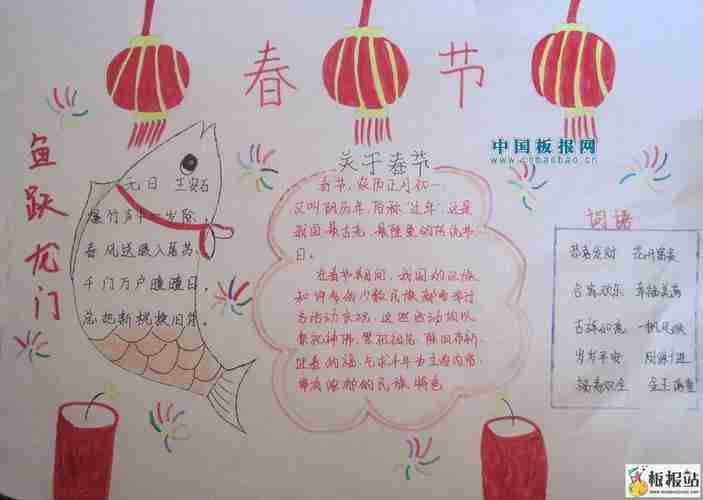 春节
中国板报网
www.cnbaobao.cn
鱼跃龙门
元日 王安石
爆竹声中一岁除,
春风送暖入屠苏。
千门万户曈曈日,
总把新桃换旧符。
关于春节
春节,农历正月初一
又叫阴历年,俗称"过年",这是
我国最古老,最隆重的传统节
日。
在春节期间,我国的汉族
和许多少数民族都要举行
各活动庆祝,这些活动均以
祭祀神佛,祭祖祖先,除旧布新,
迎春的福,乞求丰年为主要内容
带有浓郁的民族特色
词语
恭喜发财 花开富贵
合家欢乐 幸福美满
吉祥如意 一帆风顺
岁岁平安 财源广进
福寿双全 金玉满堂
板报站